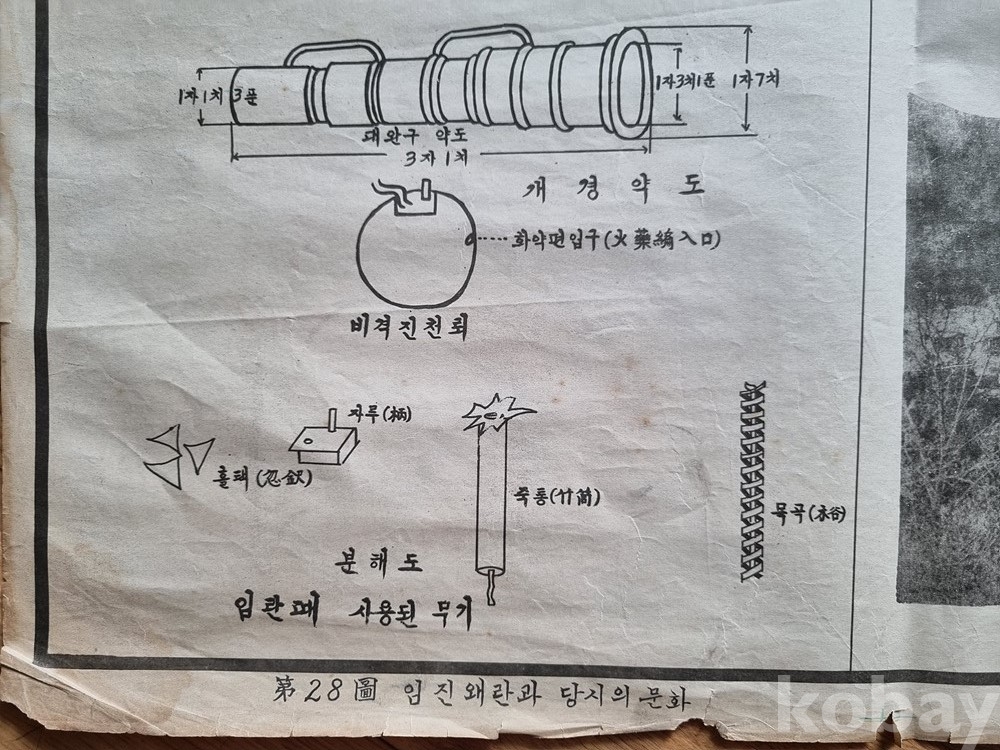 1자1치3푼
1자3치1푼
1자7치
대완구 약도
3자1치
개경약도
화약편입구(火藥編入口)
비격진천뢰
자루(柄)
죽통(竹筒)
목곡(木谷)
분해도
임란때 사용된 무기
第28圖 임진왜란과 당시의 문화
kobay